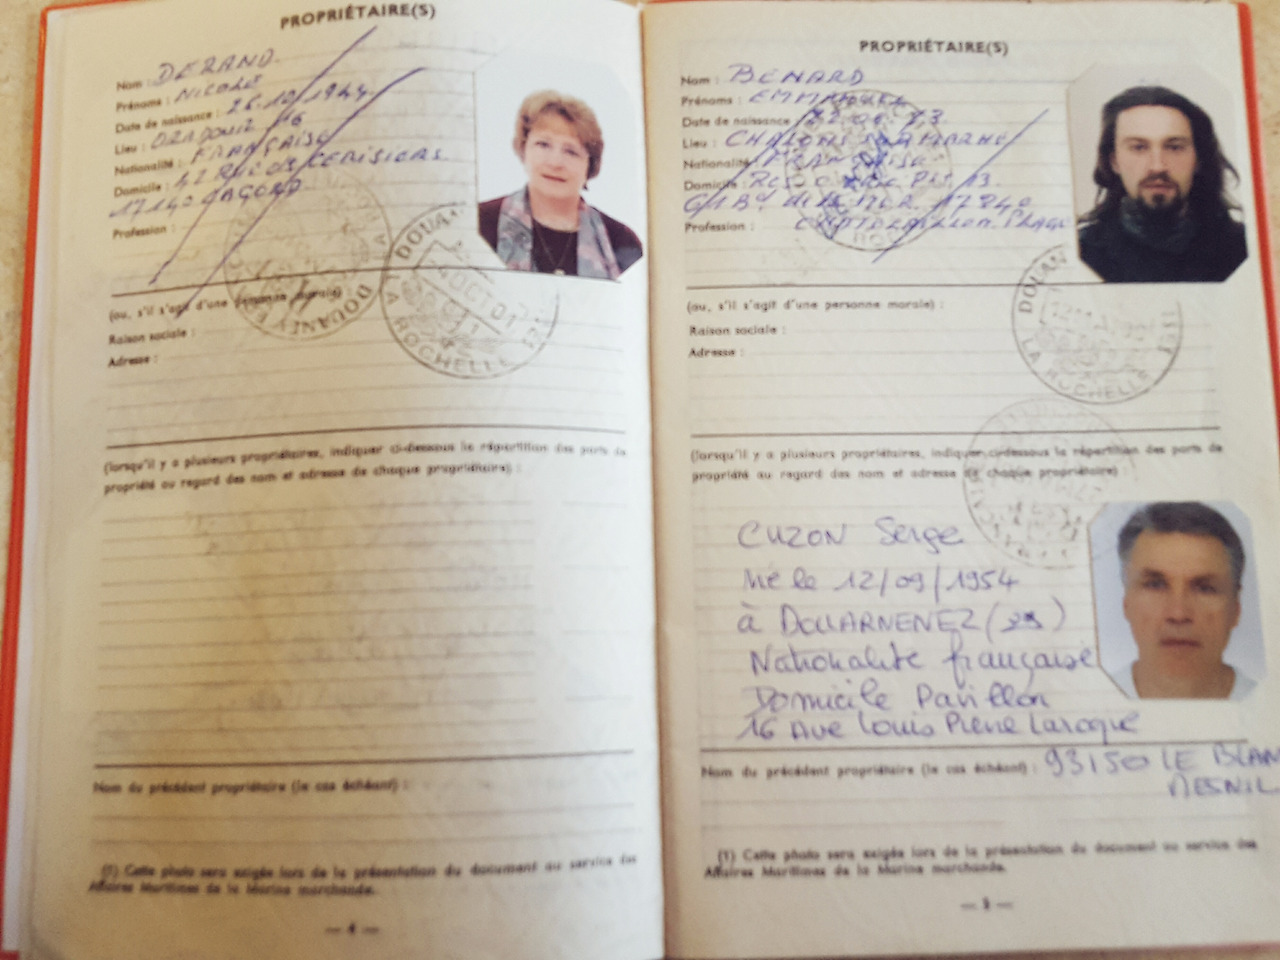 PROPRIÉTAIRE(S)
Nom : DERAND
Prénoms : NICOLE
Date de naissance : 26.10.1944
Lieu :
Nationalité : FRANÇAISE
Domicile : 42 RUE DES CERISIERS
17140 LAGORD
Profession :
(ou, s'il s'agit d'une personne morale)
Raison sociale :
Adresse :
(lorsqu'il y a plusieurs propriétaires, indiquer ci-dessous la répartition des parts de
propriété au regard des nom et adresse de chaque propriétaire) :
Nom du précédent propriétaire (le cas échéant) :
(1) Cette photo sera exigée lors de la présentation du document au service des
Affaires Maritimes de la Marine marchande.
— 4 —
DOUANE
OCT 01
LA ROCHELLE
PROPRIÉTAIRE(S)
Nom : BENARD
Prénoms : EMMANUEL
Date de naissance :
Lieu : CHALONS MARNE
Nationalité : FRANÇAISE
Domicile :
17340
Profession : CHATELAILLON PLAGE
(ou, s'il s'agit d'une personne morale) :
Raison sociale :
Adresse :
DOUAN
LA ROCHELLE
(lorsqu'il y a plusieurs propriétaires, indiquer ci-dessous la répartition des parts de
propriété au regard des nom et adresse de chaque propriétaire)
CUZON Serge
Né le 12/09/1954
à DOUARNENEZ (29)
Nationalité française
Domicile Pavillon
16 Ave Louis Pierre Laroque
93150 LE BLAN
MESNIL
Nom du précédent propriétaire (le cas échéant) :
(1) Cette photo sera exigée lors de la présentation du document au service des
Affaires Maritimes de la Marine marchande.